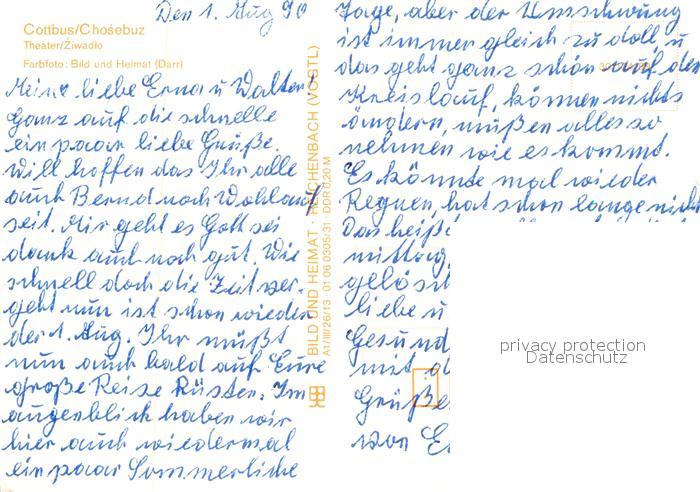 Den 1. Aug 90
Cottbus/Chośebuz
Theater/Źiwadło
Farbfoto: Bild und Heimat (Darr)
Meine liebe Erna u Walter
Ganz auf die schnelle
ein paar liebe Grüße.
Will hoffen das Ihr alle
auch Bernd noch Wohlauf
seit. Mir geht es Gott sei
dank auch noch gut. Wie
schnell doch die Zeit ver-
geht nun ist schon wieder
der 1. Aug. Ihr müßt
nun auch bald auf Eure
große Reise Rüsten. Im
augenblick haben wir
hier auch wiedermal
ein paar Sommerliche
BILD UND HEIMAT · REICHENBACH (VOGTL)
A1/III/26/13 · 01 06 0305/31 · DDR 0,20 M
Tage, aber der Umschwung
ist immer gleich zu doll, u
das geht ganz schön auf den
Kreislauf, können nichts
ändern, müßen alles so
nehmen wie es kommt.
Es könnte mal wieder
Regnen, hat schon lange nicht
Das heiße
mittag
gelösch
liebe u
Gesund
mit
Grüße
von
privacy protection
Datenschutz